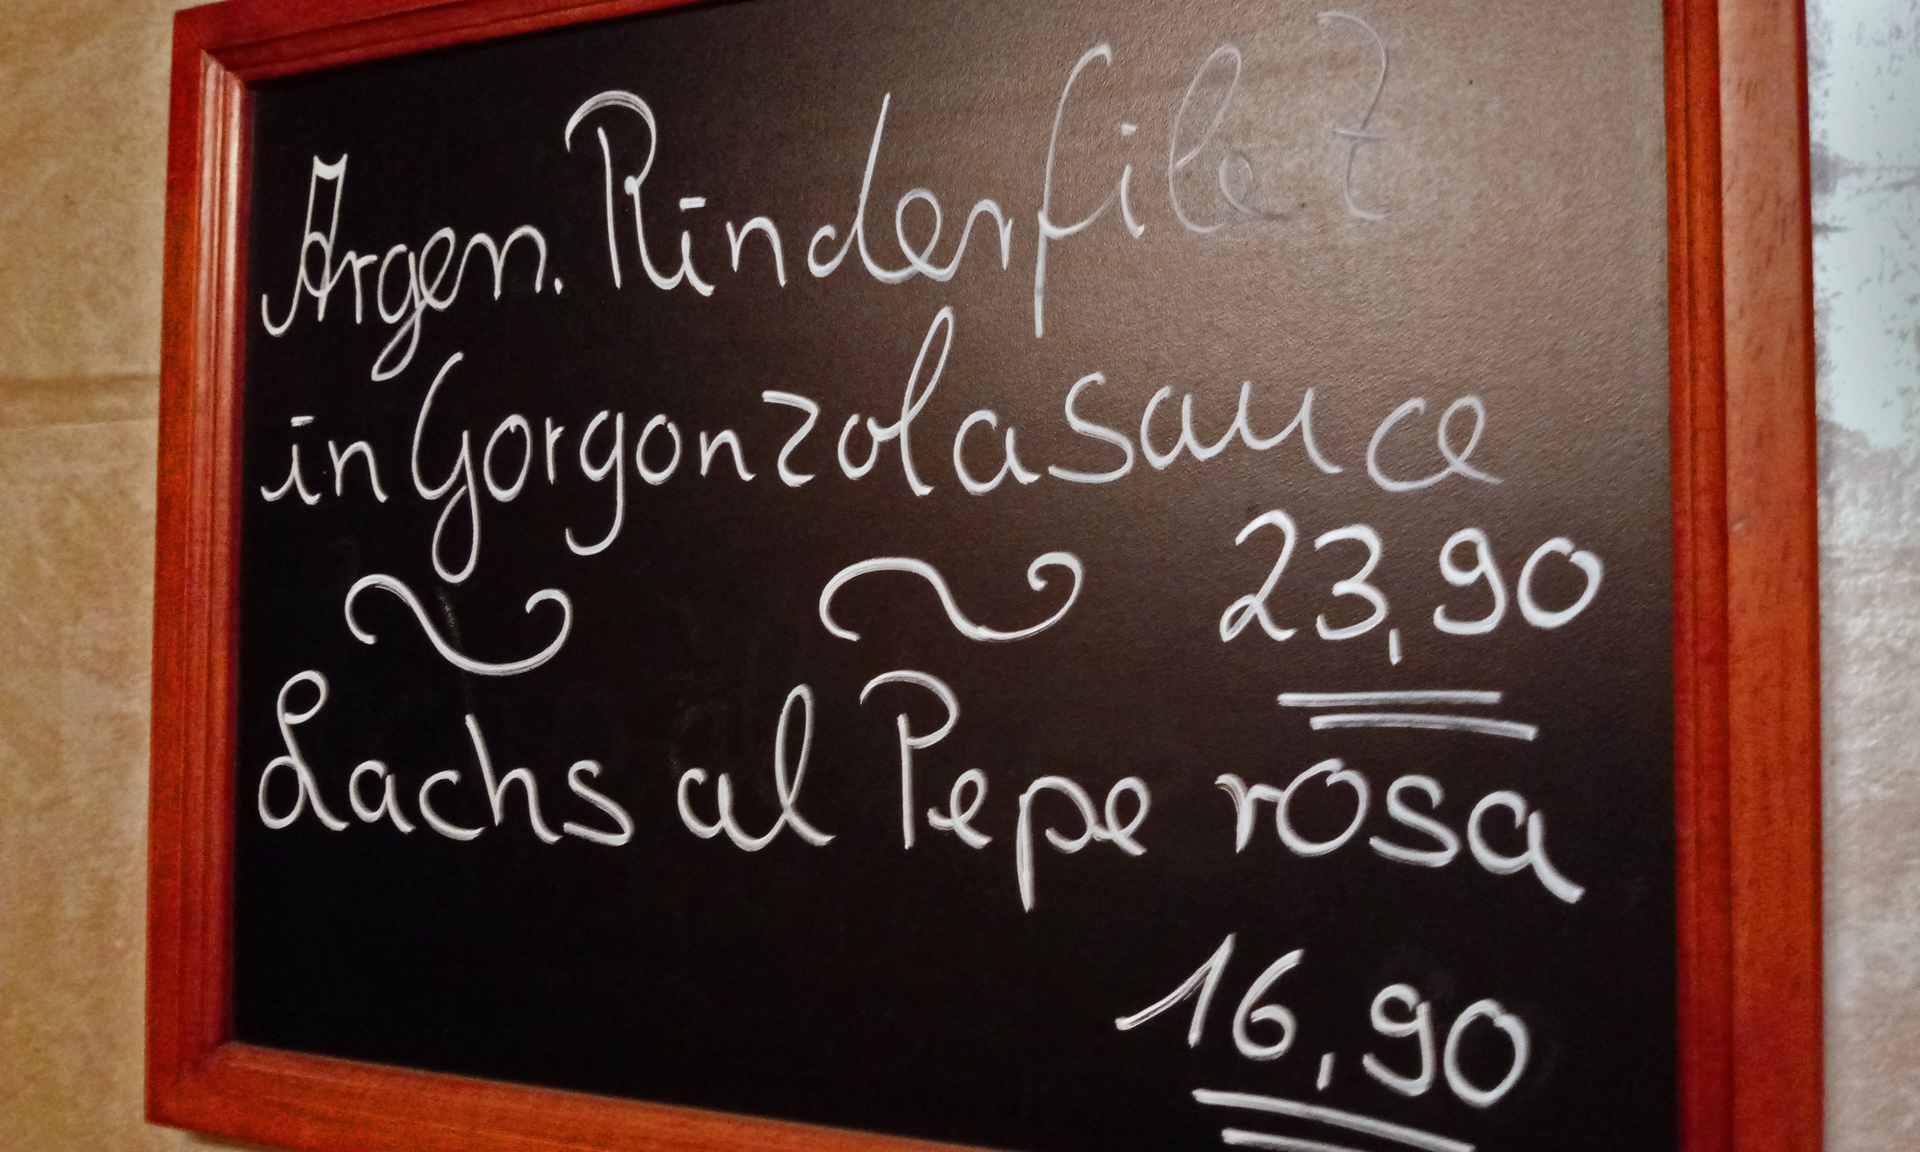 Argen. Rinderfilet
in Gorgonzolasauce
23,90
Lachs al Pepe rosa
16,90